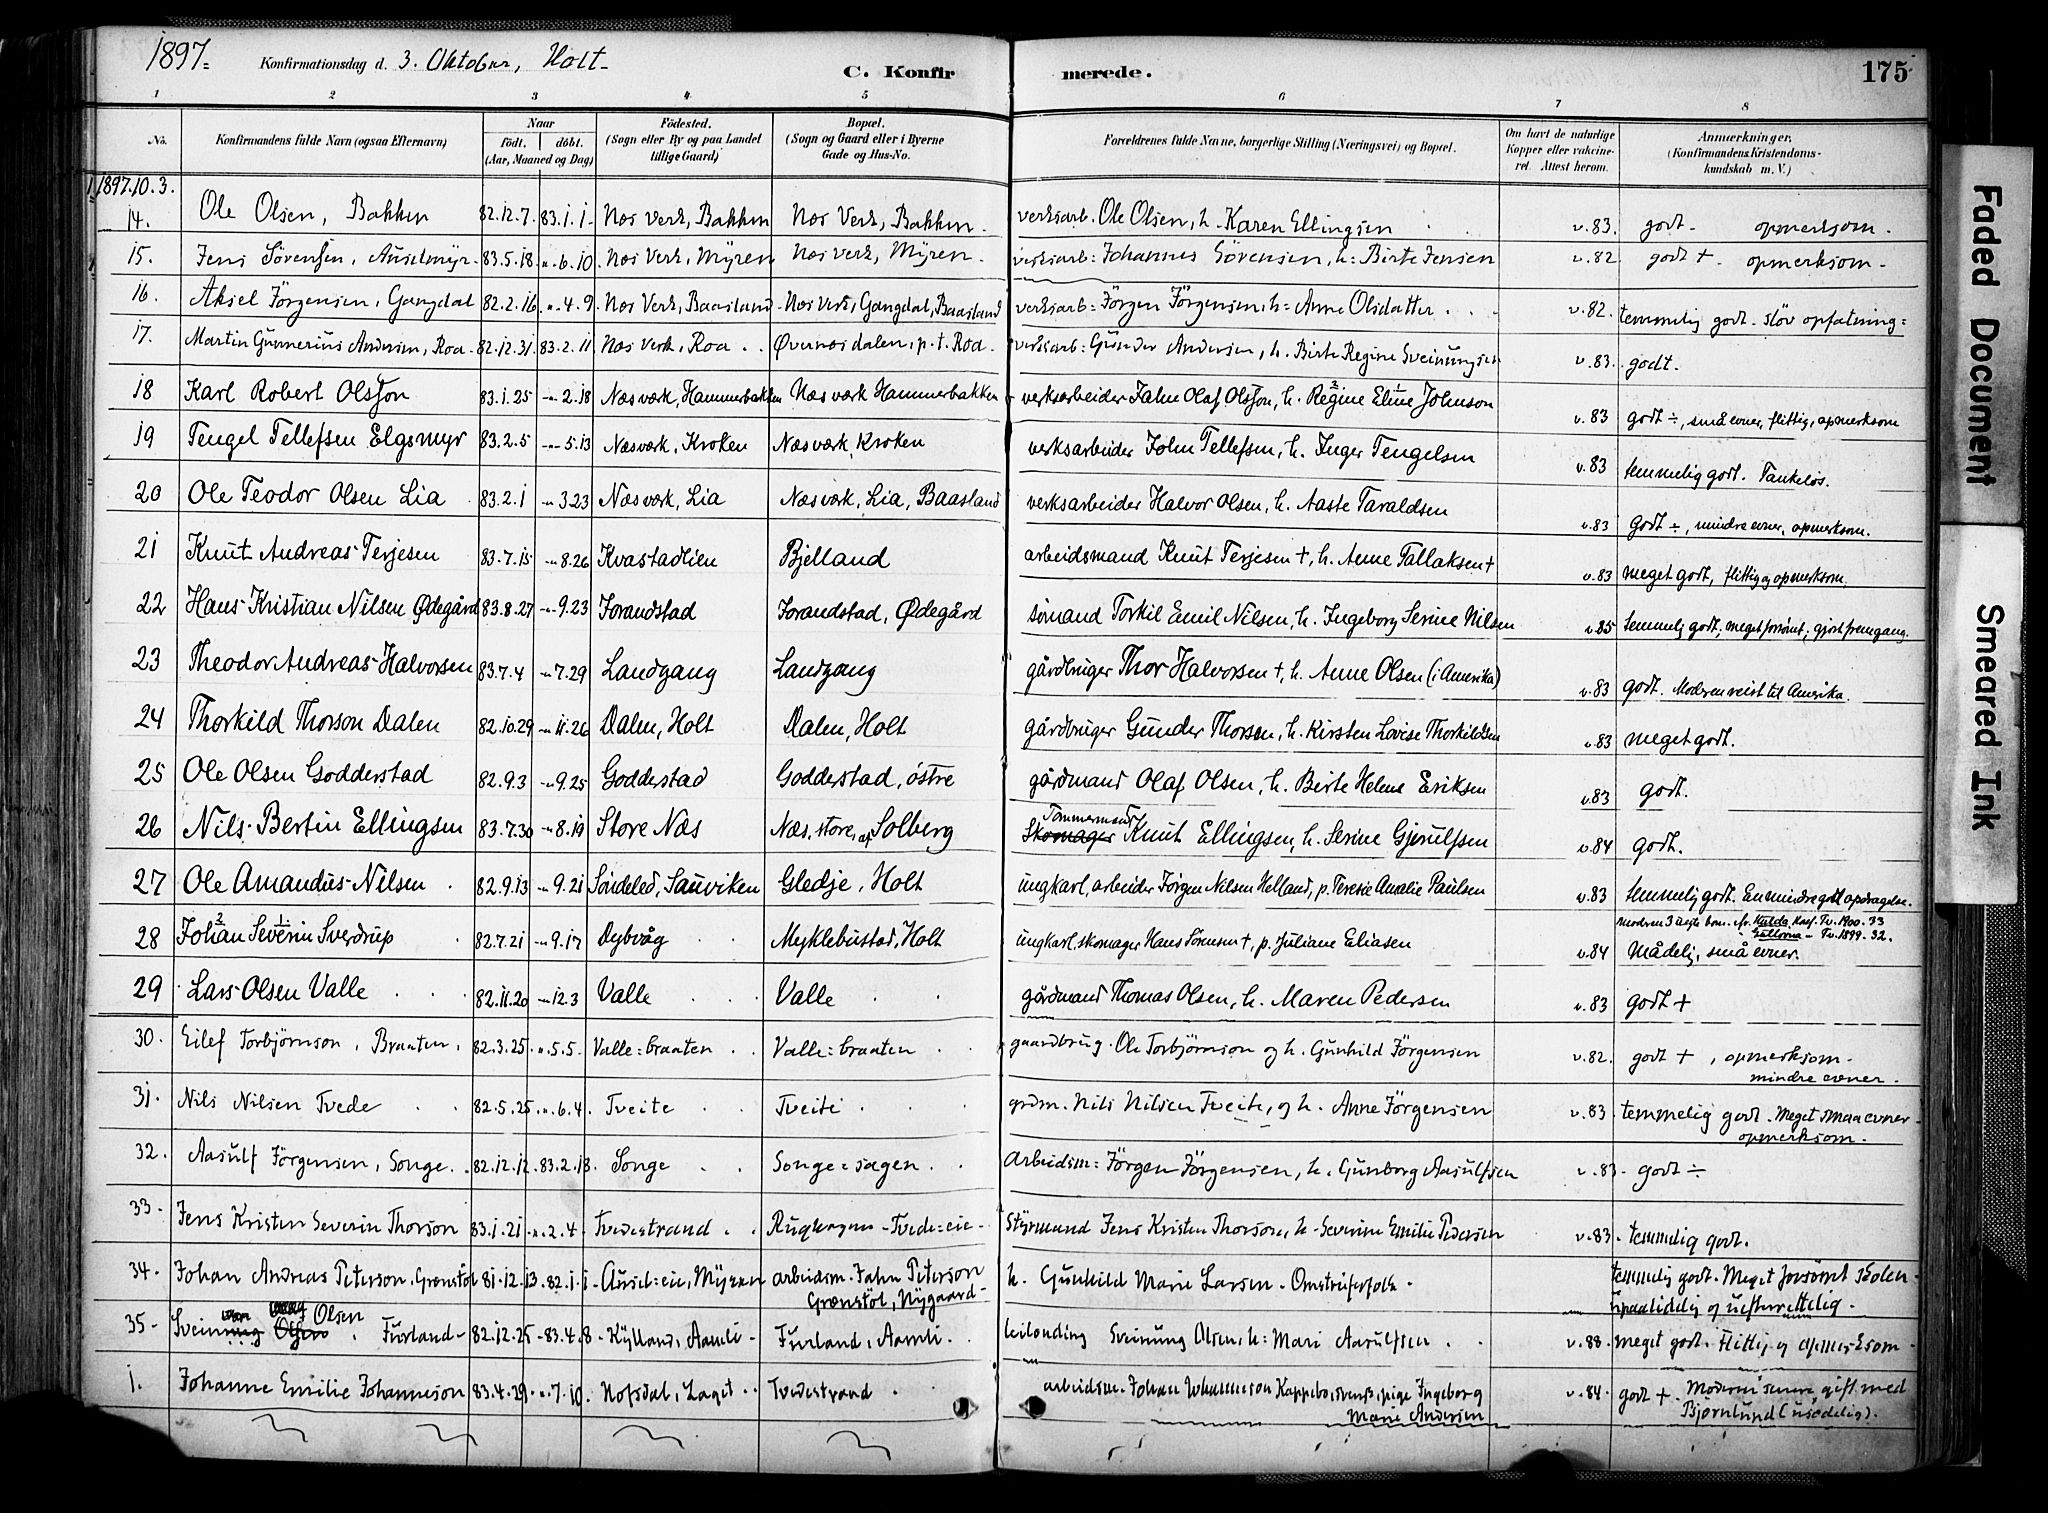 1897. Konfirmationsdag d. 3. Oktober, Holt. C. Konfirmerede. 175
1 2 3 4 5 6 7 8
No. Konfirmandens fulde Navn (ogsaa Efternavn) Naar født. døbt. (Aar, Maaned og Dag) Födested. (Sogn eller By og paa Landet tillige Gaard) Bopæl. (Sogn og Gaard eller i Byerne Gade og Hus-No. Forældrenes fulde Navne, borgerlige Stilling (Næringsvei) og Bopæl. Om havt de naturlige Kopper eller vakcineret. Attest herom. Anmærkninger. (Konfirmandens Kristendomskundskab m. V.)
1897.10.3.
14. Ole Olsen, Bakken 82.12.7. 83.1.1. Næs Verk, Bakken Næs Verk, Bakken. verksarb. Ole Olsen, h. Karen Ellingsen v.83. godt. opmerksom.
15. Jens Sörensen, Auselmyr. 83.5.18. „.6.10. Næs Verk, Myren Næs Verk, Myren. verksarb: Johannes Sörensen, h: Birte Jensen v.82 godt +. opmerksom.
16. Aksel Jörgensen, Gangdal 82.2.16. „.4.9. Næs Verk, Baasland Næs Verk, Gangdal, Baasland verksarb: Jörgen Jörgensen, h: Anne Olsdatter v.82. temmelig godt. sløv opfatning:
17. Martin Gunnerius Andersen, Roa. 82.12.31. 83.2.11 Næs Verk, Roa Øvernæsdalen, p.t. Roa. verksarb: Gunder Andersen, h. Birte Regine Sveinungsen v.83. godt.
18 Karl Robert Olsson 83.1.25 „.2.18 Næsværk, Hammerbakken Næsværk Hammerbakken verksarbeider John Olaf Olsson, h. Regine Eline Johnson v.83 godt ÷, små evner, flittig, opmerksom
19 Tengel Tellefsen Elgsmyr 83.2.5 „.5.13 Næsværk, Kroken Næsværk Kroken verksarbeider John Tellefsen, h. Inger Tengelsen v.83 temmelig godt. Tankeløs.
20 Ole Teodor Olsen Lia 83.2.1 „.3.23 Næsværk, Lia Næsværk, Lia, Baasland verksarbeider Halvor Olsen, h. Aaste Taraldsen v.83 godt ÷, mindre evner, opmerksom.
21 Knut Andreas Terjesen 83.7.15 „.8.26 Kvastadlien Bjelland arbeidsmand Knut Terjesen +, h. Anne Tallaksen + v.83 meget godt, flittig og opmerksom.
22 Hans Kristian Nilsen Ødegård 83.8.27 „.9.23 Jorandstad Jorandstad, Ødegård sömand Torkil Emil Nilsen, h. Ingeborg Serine Nilsen v.85 temmelig godt, meget forsömt, gjort fremgang.
23 Theodor Andreas Halvorsen 83.7.4 „.7.29 Landgang Landgang gårdbruger Thor Halvorsen +, h. Anne Olsen (i Amerika) v.83 godt. Moderen reist til Amerika.
24 Thorkild Thorson Dalen 82.10.29 „.11.26 Dalen, Holt Dalen, Holt gårdbruger Gunder Thorsen, h. Kirsten Lovise Thorkildsen v.83 meget godt.
25 Ole Olsen Godderstad 82.9.3 „.9.25 Godderstad Godderstad, östre gårdmand Olaf Olsen, h. Birte Helene Eriksen v.83 godt.
26 Nils Bertin Ellingsen 83.7.30 „.8.19 Store Næs Næs, store, af Solberg Tømmermand Skomager Knut Ellingsen, h. Serine Gjerulfsen v.84 godt.
27 Ole Amandus Nilsen 82.9.13 „.9.21 Söndeled, Sauviken Gledje, Holt ungkarl, arbeider Jörgen Nilsen Helland, p. Teresie Amalie Paulsen v.83 temmelig godt. En mindre god opdragelse.
28 Johan Severin Sverdrup 82.7.21 „.9.17 Dybvåg Myklebustad, Holt ungkarl, skomager Hans Sörensen +, p. Juliane Eliasen v.84 Moderen 3 uegte born. cfr. Hulda, Konf. Tv. 1900. 33 Tv. 1899. 32. Mådelig, små evner.
29 Lars Olsen Valle 82.11.20 „.12.3 Valle Valle gårdmand Thomas Olsen, h. Maren Pedersen v.83 godt +
30. Eilef Torbjörnson, Braaten. 82.3.25. „.5.5. Valle=braaten Valle=braaten gaardbrug. Ole Torbjörnson og h. Gunhild Jörgensen v.82. godt +, opmerksom. mindre evner.
31. Nils Nilsen Tvede 82.5.25. „.6.4. Tveite Tveite grdm. Nils Nilsen Tveite, og h. Anne Jörgensen v.83. temmelig godt. Meget smaa evner. opmerksom.
32. Aasulf Jörgensen, Songe. 82.12.12. 83.2.18. Songe Songe=sagen. Arbeidsm: Jörgen Jörgensen, h. Gunborg Aasulfsen v.83. godt ÷
33. Jens Kristen Severin Thorson 83.1.21 „.2.4. Tvedestrand Tvede=eie. Styrmand Jens Kristen Thorson, h. Severine Emilie Pedersen v.83. temmelig godt.
34. Johan Andreas Peterson, Grenstöl 81.12.13. 82.1.1. Ausel=eie, Myren arbeidsm. John Peterson Grenstöl, Nygaard. h. Gunhild Marie Larsen. Omstreiferfolk. temmelig godt. Meget forsömt Skolen. upaalidelig og uefterrettelig.
35. Sveinung Olsen Olsen, Furland. 82.12.25. 83.4.8. Kylland, Aamli. Furland, Aamli. Leilending Sveinung Olsen, h: Mari Aasulfsen v.88. meget godt. Flittig og opmerksom.
1. Johanne Emilie Johanneson 83.4.29. „.7.10. Hofsdal, Laget Tvedestrand arbeidsm. Johan Johannesen, pige Ingeborg Marie Andersen v.84. godt +. Moderen senere gift med Bjørnlund (usedelig).
Faded Document
Smeared Ink